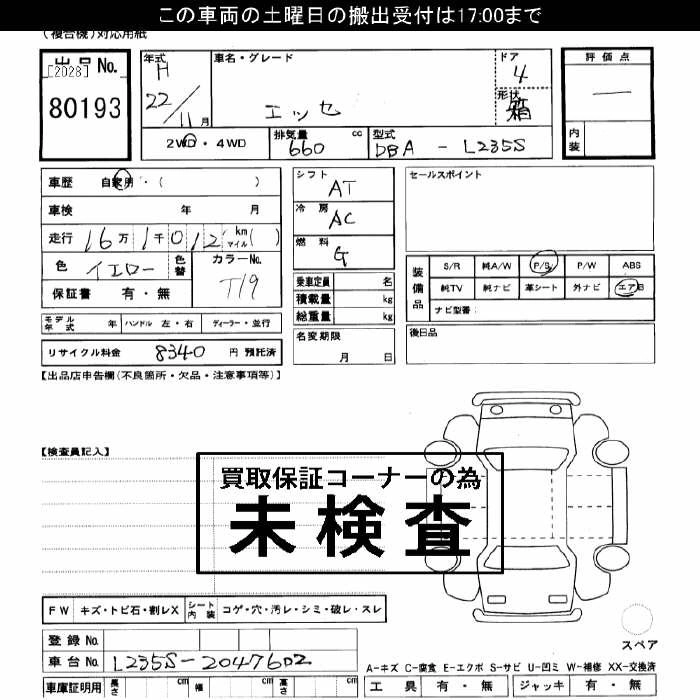 この車両の土曜日の搬出受付は17:00まで
(複合機)対応用紙
出品No.
[2028]
80193
年式 H 22/11月
車名・グレード
エッセ
ドア 4
形状 箱
評価点
—
内装
2WD・4WD
排気量 660 cc
型式 DBA - L235S
車歴 自家用・( )
車検 年 月
走行 16万1千012 km マイル( )
色 イエロー 色替
カラーNo. T19
保証書 有・無
シフト AT
冷房 AC
燃料 G
乗車定員 名
積載量 kg
総重量 kg
名変期限 月 日
セールスポイント
装備品
S/R 純A/W P/S P/W ABS
純TV 純ナビ 革シート 外ナビ エアB
ナビ型番:
後日品
モデル年式 年 ハンドル 左・右 ディーラー・並行
リサイクル料金 8340 円 預託済
【出品店申告欄(不良箇所・欠品・注意事項等)】
【検査員記入】
買取保証コーナーの為
未検査
FW キズ・トビ石・割レX シート内装 コゲ・穴・汚レ・シミ・破レ・スレ
登録No.
車台No. L235S-2047602
車庫証明用 長さ cm 幅 cm 高さ cm
スペア
A-キズ C-腐食 E-エクボ S-サビ U-凹ミ W-補修 XX-交換済
工具 有・無 ジャッキ 有・無